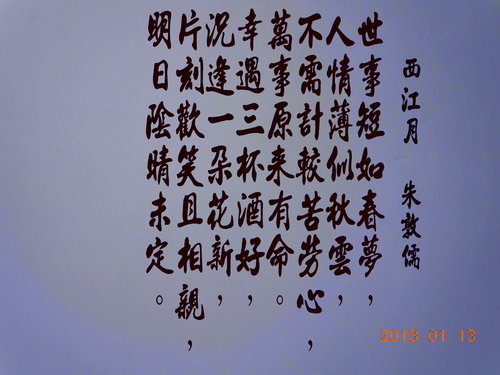 西江月 朱敦儒
世事短如春夢，
人情薄似秋雲，
不需計較苦勞心，
萬事原来有命。
幸遇三杯酒好，
況逢一朵花新，
片刻歡笑且相親，
明日陰晴未定。
2013 01 13